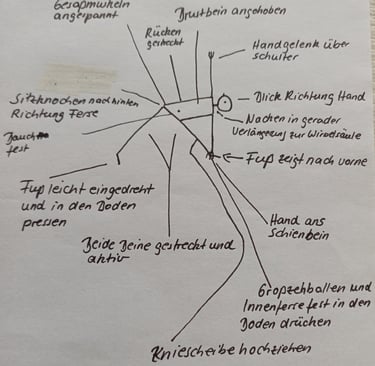 Gesäßmukeln
angespannt
Brustbein angehoben
Rücken
gestreckt
Handgelenk über
schulter
Sitzknochen nach hinten
Richtung Ferse
Blick Richtung Hand
Nacken in gerader
Verlängerung zur Wirbelsäule
Bauch
fest
Fuß zeigt nach vorne
Fuß leicht eingedreht
und in den Boden
pressen
Hand ans
schienbein
Beide Beine gestreckt und
aktiv
Großzehballen und
Innenferse fest in den
Boden drücken
Kniescheibe hochziehen